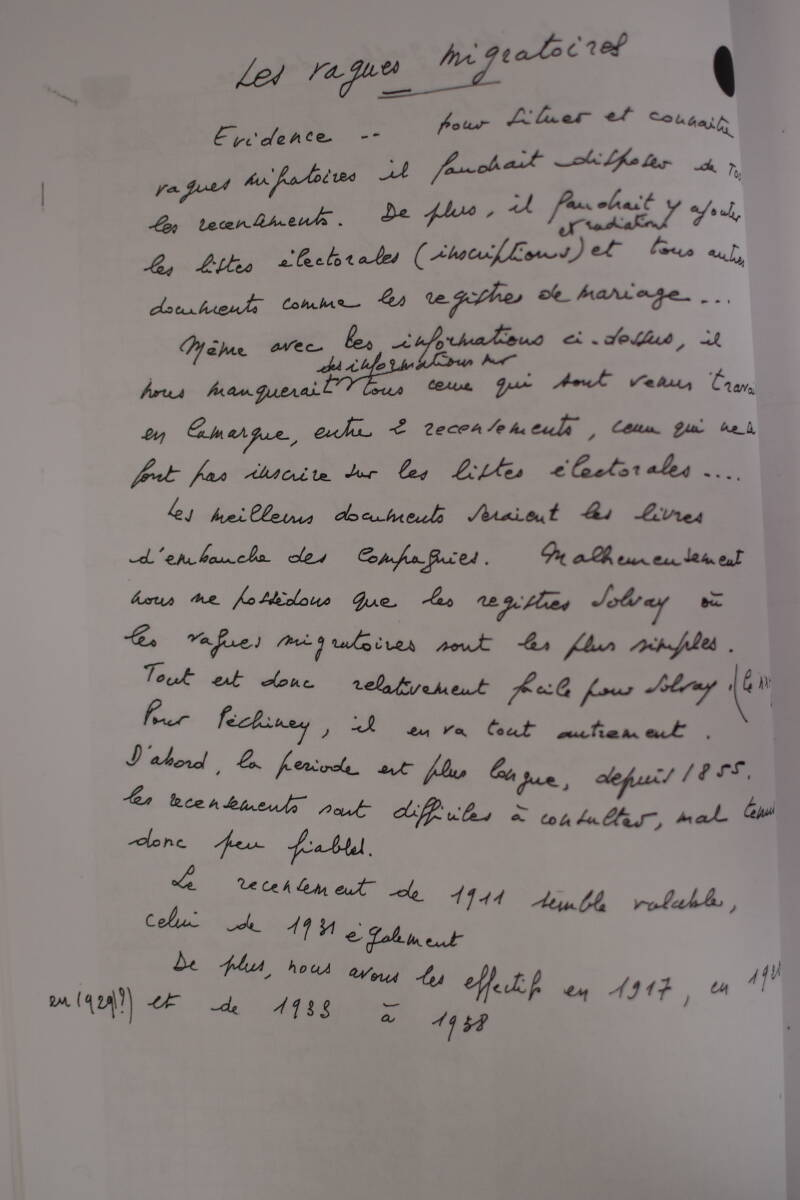 Les vagues migratoires
Evidence -- pour situer et connaitre
vagues migratoires il faudrait disposer de
les recensements. De plus, il faudrait y ajouter
et radiations
les listes électorales (inscriptions) et tous autres
documents comme les registres de mariage ...
Même avec les informations ci-dessus, il
des informations sur
nous manquerait tous ceux qui sont venus
en Camargue, entre 2 recensements, ceux qui
font pas inscrire sur les listes électorales ....
Les meilleurs documents seraient les livres
d'embauche des Compagnies. Malheureusement
nous ne possédons que les registres Solvay où
les vagues migratoires sont les plus simples.
Tout est donc relativement facile pour Solvay.
Pour Péchiney, il en va tout autrement.
D'abord, la période est plus longue, depuis 1855.
les recensements sont difficiles à consulter, mal
donc peu fiables.
Le recensement de 1911 semble valable,
celui de 1931 également
De plus, nous avons les effectifs en 1917, en
en 1929(?) et de 1933 à 1938